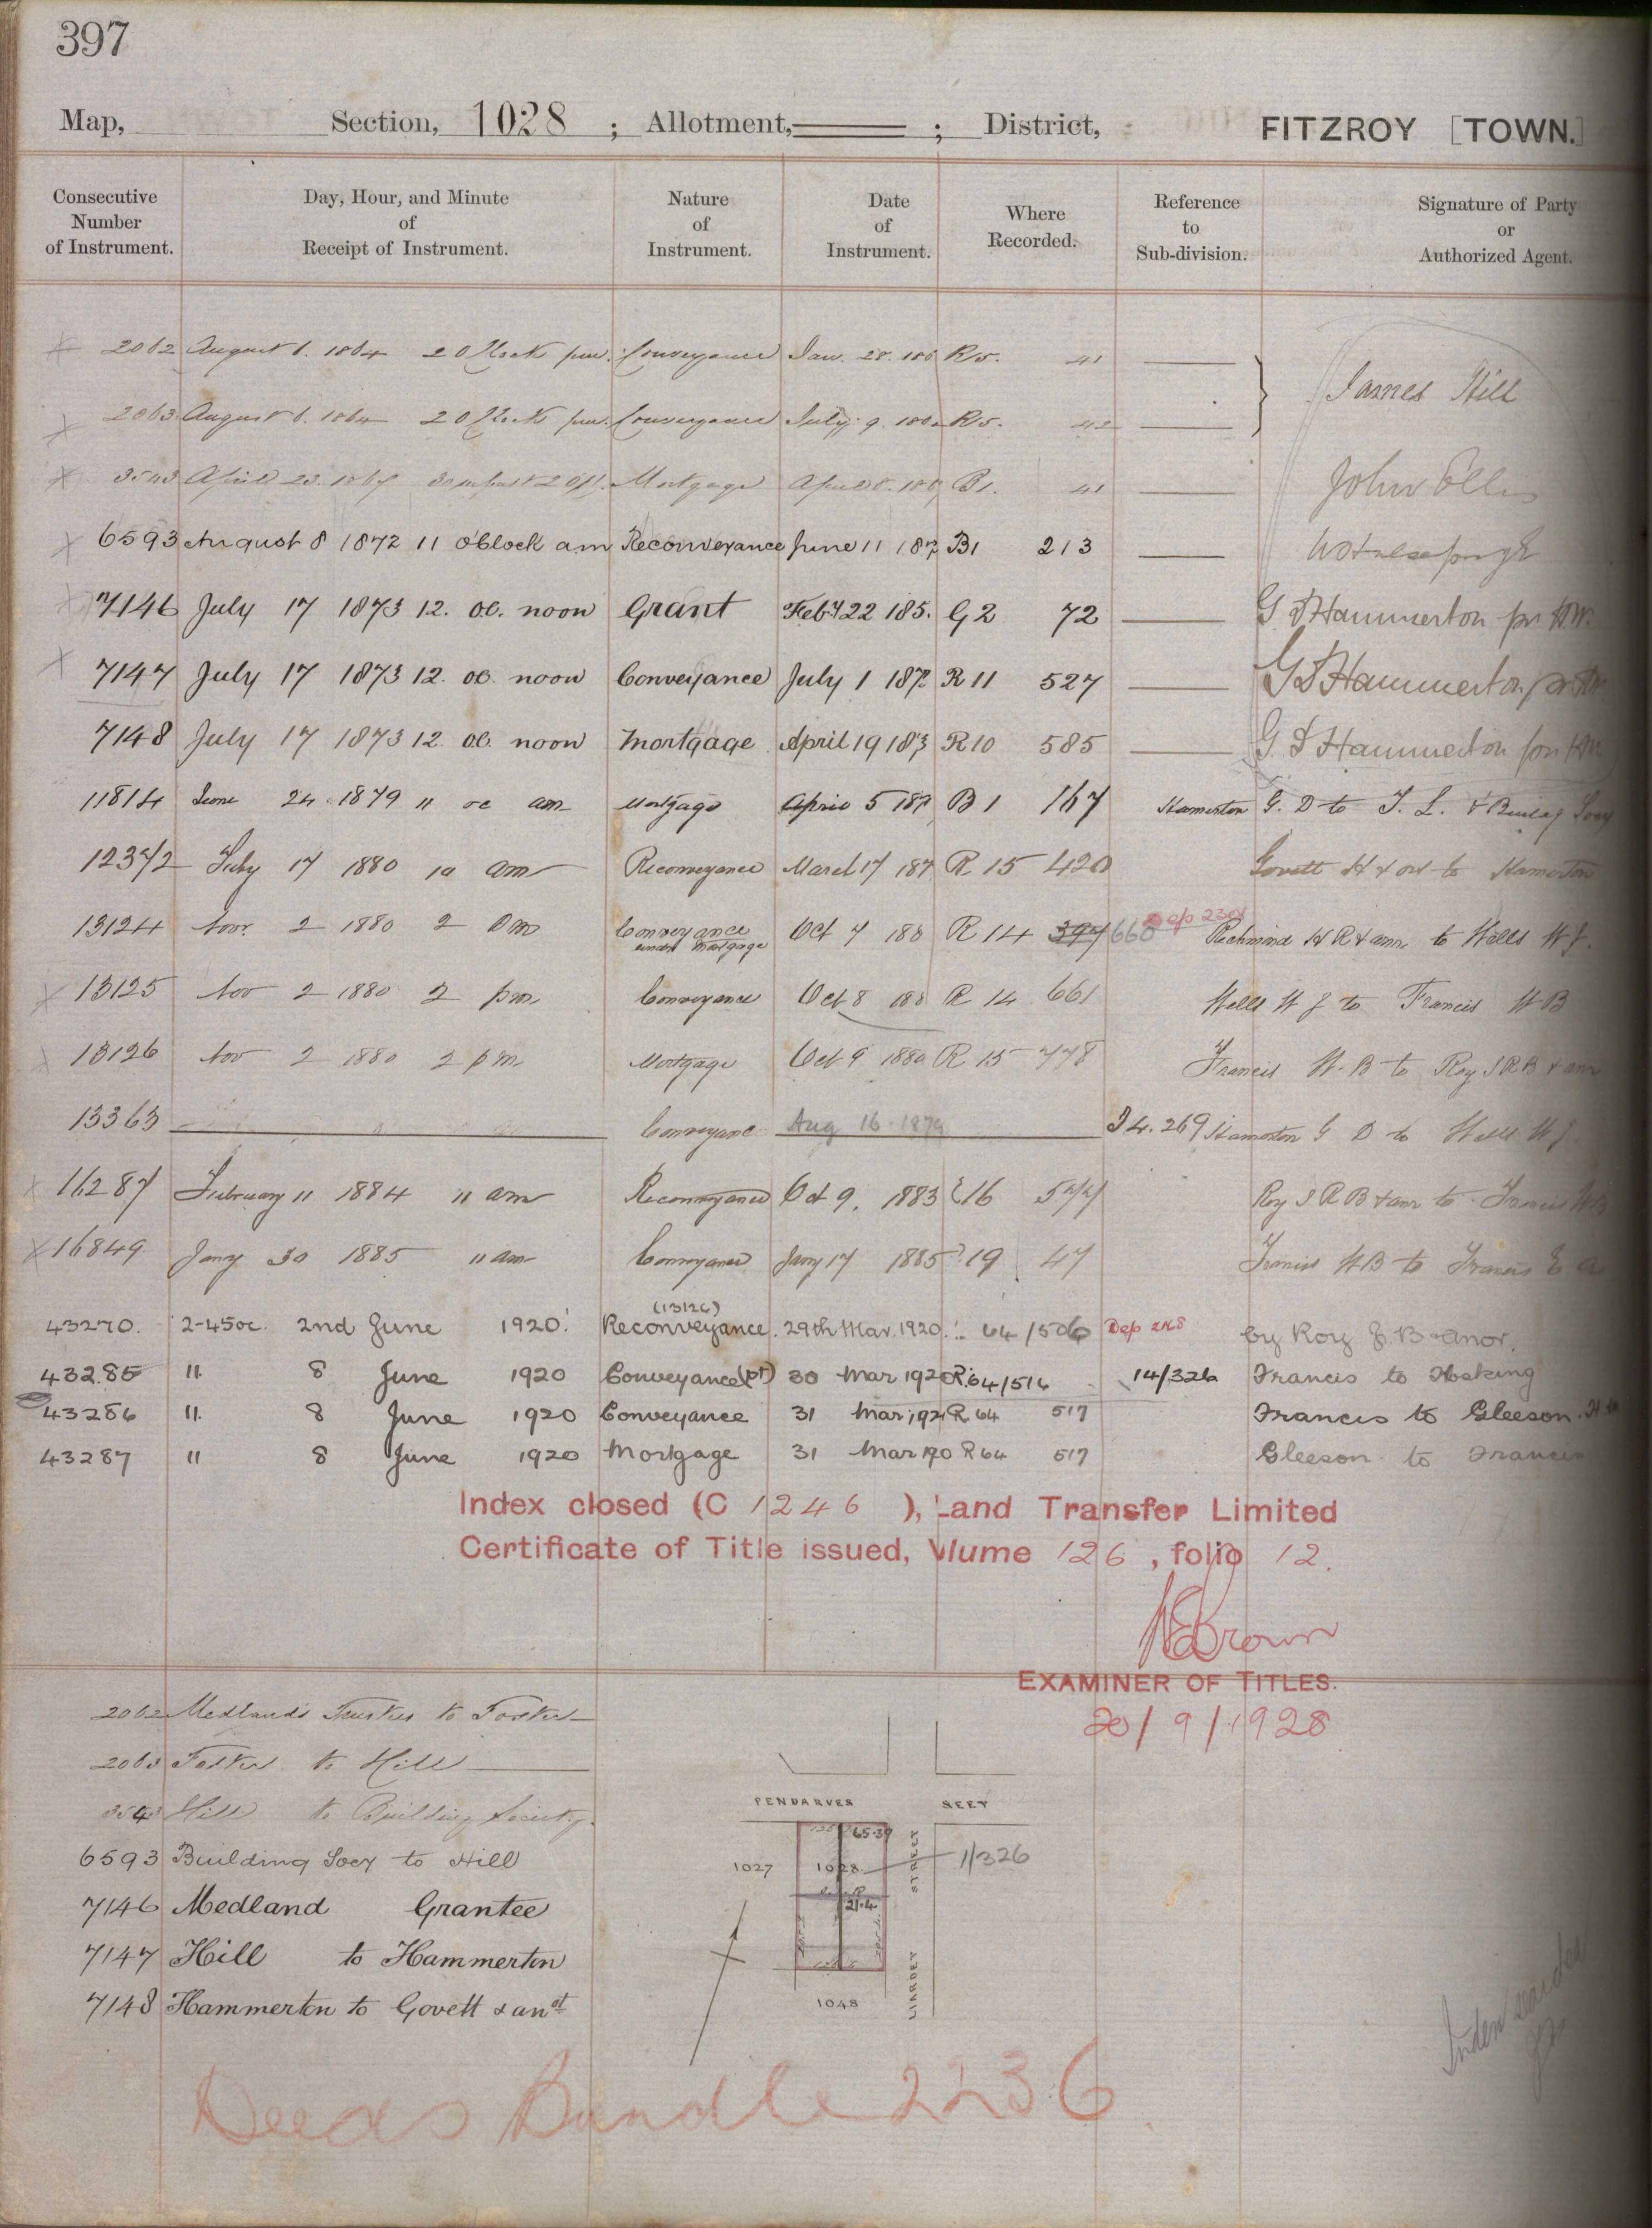 397
Map, Section, 1028 ; Allotment, ; District, FITZROY [TOWN.]
Consecutive Number of Instrument. Day, Hour, and Minute of Receipt of Instrument. Nature of Instrument. Date of Instrument. Where Recorded. Reference to Sub-division. Signature of Party or Authorized Agent.
2062 August 6. 1864 2 OClock pm. Conveyance Jan. 28. 186 R5. 41
James Hill
2063 August 6. 1864 2 OClock pm. Conveyance July 9 186 R5. 42
3543 April 23. 1867 Mortgage April 8. 186 B1. 41 John Ellis
6593 August 8 1872 11 oClock am Reconveyance June 11 187 B1 213
7146 July 17 1873 12. oc. noon Grant Feby 22 185. G2 72 G D Hammerton
7147 July 17 1873 12. oc. noon Conveyance July 1 187 R11 527 G D Hammerton
7148 July 17 1873 12. oc. noon Mortgage April 19 1873 R10 585 G. D Hammerton
11814 June 24 1879 11 oc am Mortgage April 5 187 B1 167 Hamerton G. D to T. L. & Buildg Socy
12372 July 17 1880 10 am Reconveyance March 17 187 R 15 420 Govett H & or to Hamerton
13124 Novr. 2 1880 2 pm Conveyance under Mortgage Oct 7 188 R 14 397 660 Richmond H R & anr. to Wells W J.
13125 Nov 2 1880 2 pm Conveyance Oct 8 188 R 14 661 Wells W J to Francis W B
13126 Nov 2 1880 2 pm Mortgage Oct 9 1880 R 15 778 Francis W. B to Roy J R B & anr
13363 Conveyanc Aug 16 1879 D4. 269 Hamerton G D to Wells W J.
16287 February 11 1884 11 am Reconveyance Oct 9. 1883 16 577 Roy J R B & anr to Francis W B
16849 Jany 30 1885 11 am Conveyance Jany 17 1885 19 47 Francis W B to Francis E A
(13126)
43270. 2-45oc. 2nd June 1920. Reconveyance. 29th Mar. 1920. 64/506 Dep by Roy J. B & Anor.
43285 " 8 June 1920 Conveyance (pt) 30 Mar 1920 R.64/516 14/326 Francis to Hosking
43286 " 8 June 1920 Conveyance 31 Mar. 192 R.64 517 Francis to Gleeson
43287 " 8 June 1920 Mortgage 31 Mar 190 R64 517 Gleeson to Francis
Index closed (C 1246 ), Land Transfer Limited
Certificate of Title issued, Vlume 126, folio 12.
Brown
EXAMINER OF TITLES.
20/9/1928
2062 Medland's Trustees to Foster
2063 Foster to Hill
3543 Hill to Building Society.
6593 Building Socy to Hill
7146 Medland Grantee
7147 Hill to Hammerton
7148 Hammerton to Govett & anr
PENDARVES SEET
65.39
1027 1028 STREET 1/326
21.4
LIARDET
1048
Deeds Bundle 2236